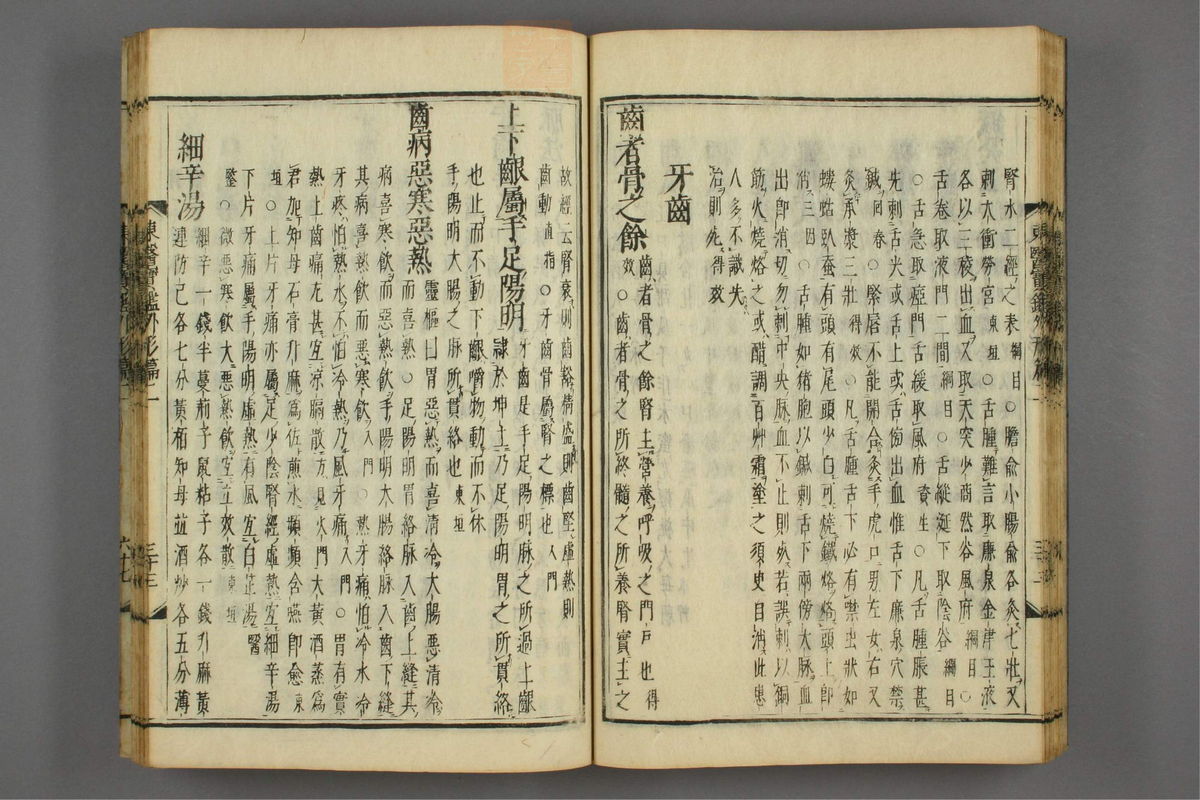 腎水二經之表綱目○膽俞小腸俞各灸七壯又
刺太衝勞宮東垣○舌腫難言取廉泉金津玉液
各以三稜出血又取天突少商然谷風府綱目○
舌卷取液門二間綱目○舌縱涎下取陰谷綱目
○舌急取瘂門舌緩取風府資生○凡舌腫脹甚
先刺舌尖或舌上或舌傍出血惟舌下廉泉穴禁
鍼回春○緊唇不能開合灸手虎口男左女右又
灸承漿三壯得效○凡舌腫舌下必有禁虫狀如
螻蛄臥蚕有頭有尾頭少白可燒鐵烙烙頭上即
消三四○舌腫如猪胞以鍼刺舌下兩傍大脉血
出即消切勿刺中央脉血不止則死若誤刺以銅
筯火燒烙之或醋調百艸霜塗之須史自消此患
人多不識失
治則死得效
牙齒
齒者骨之餘齒者骨之餘腎主營養呼吸之門戶也得
效○齒者骨之所終髓之所養腎實主之
故經云腎衰則齒豁精盛則齒堅虛熱則
齒動直指○牙齒骨屬腎之標也入門
上下齦屬手足陽明牙齒是手足陽明脉之所過上齦
隷於坤土乃足陽明胃之所貫絡
也止而不動下齦嚼物動而不休
手陽明大腸之脉所貫絡也東垣
齒病惡寒惡熱靈樞曰胃惡熱而喜清冷大腸惡清冷
而喜熱○足陽明胃絡脉入齒上縫其
病喜寒飲而惡熱飲手陽明大腸絡脉入齒下縫
其病喜熱飲而惡寒飲入門○熱牙痛怕冷水冷
牙疼怕熱水不怕冷熱乃風牙痛入門○胃有實
熱上齒痛尤甚宜涼膈散方見火門大黃酒蒸爲
君加知母石膏升麻爲佐煎水頻頻含嚥即愈東
垣○上片牙痛亦屬足少陰腎經虛熱宜細辛湯
下片牙痛屬手陽明虛熱有風宜白芷湯醫
鑒○微惡寒飲大惡熱飲宜立效散東垣
細辛湯細辛一錢半蔓荊子鼠粘子各一錢升麻黃
連防己各七分黃栢知母並酒炒各五分薄
東醫寶鑑外形篇二
三十三